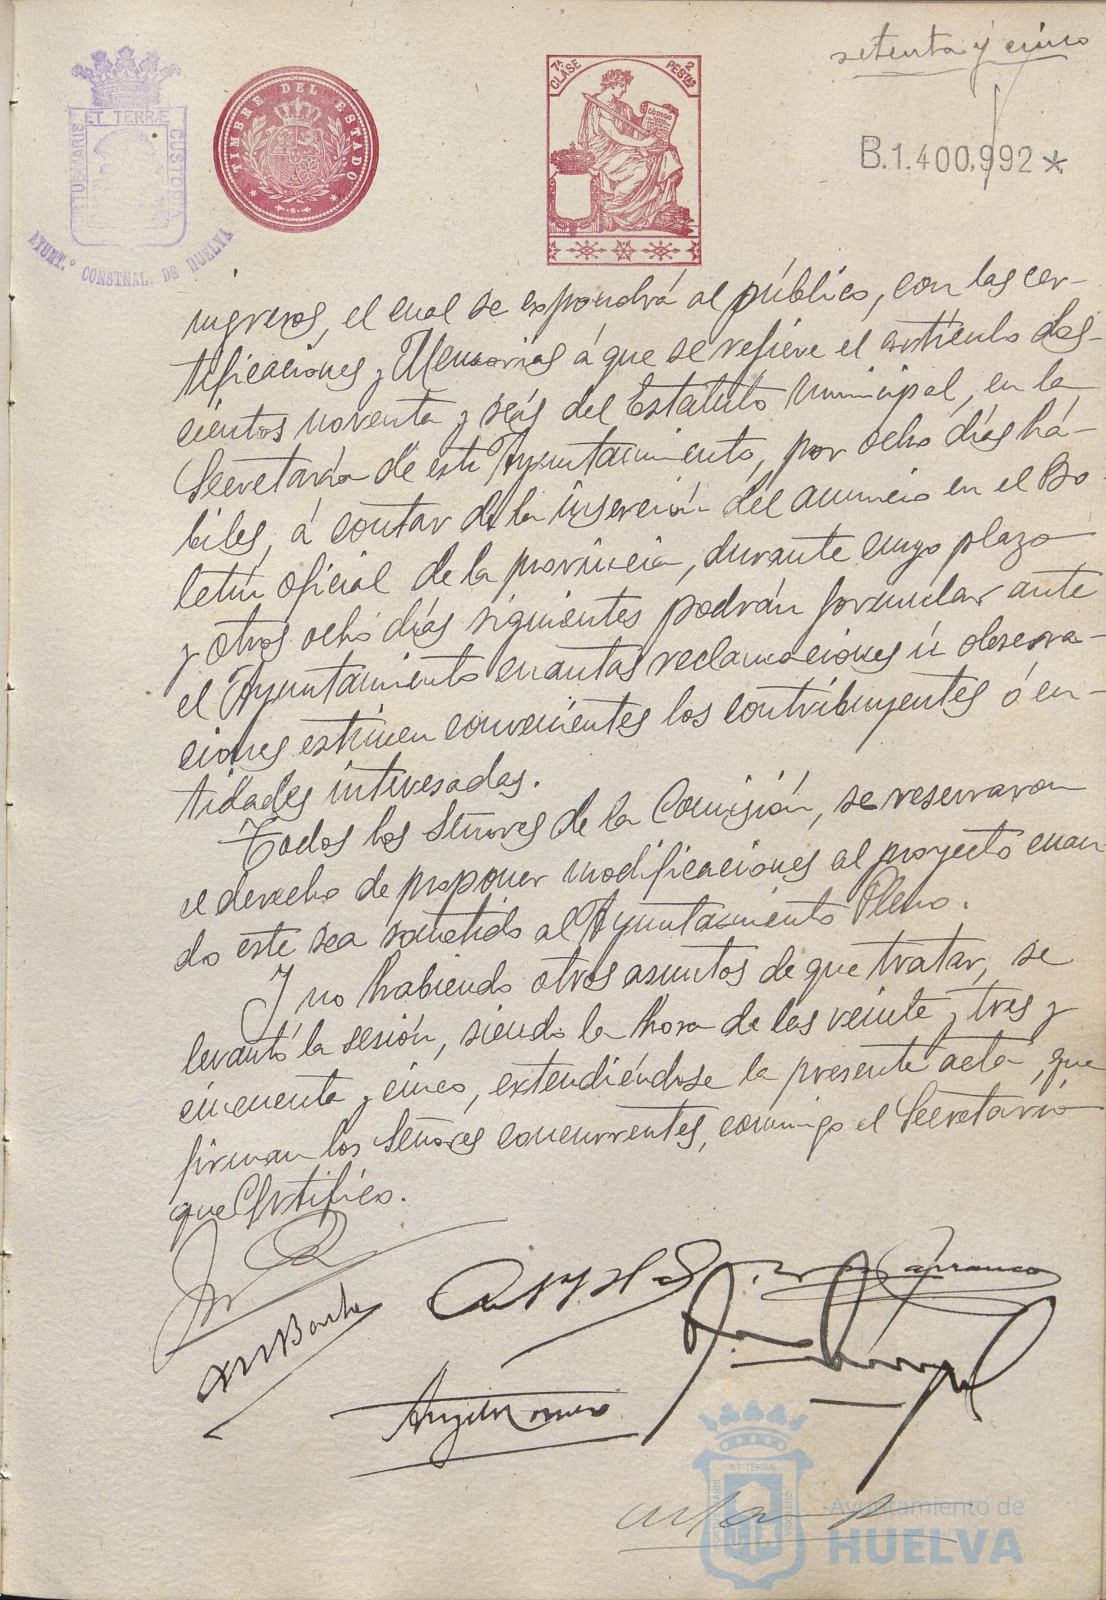 setenta y cinco
ET TERRÆ
PORTUS MARIS
CUSTODIA
AYUNT.º CONSTNAL. DE HUELVA
TIMBRE DEL ESTADO
7ª CLASE
2 PESTAS
CÓDIGO
B.1.400.992*
ingresos, el cual se expondrá al público, con las cer-
tificaciones y Memorias á que se refiere el artículo dos-
cientos noventa y seis del Estatuto Municipal, en la
Secretaría de este Ayuntamiento, por ocho días há-
biles, á contar de la inserción del anuncio en el Bo-
letín oficial de la provincia, durante cuyo plazo
y otros ocho días siguientes podrán formular ante
el Ayuntamiento cuantas reclamaciones ú observa-
ciones estimen convenientes los contribuyentes ó en-
tidades interesadas.
Todos los Señores de la Comisión, se reservaron
el derecho de proponer modificaciones al proyecto cuan-
do este sea sometido al Ayuntamiento Pleno.
Y no habiendo otros asuntos de que tratar, se
levantó la sesión, siendo la hora de las veinte y tres y
cincuenta y cinco, extendiéndose la presente acta, que
firman los Señores concurrentes, conmigo el Secretario
que Certifico.
ET TERRÆ
Ayuntamiento de
HUELVA